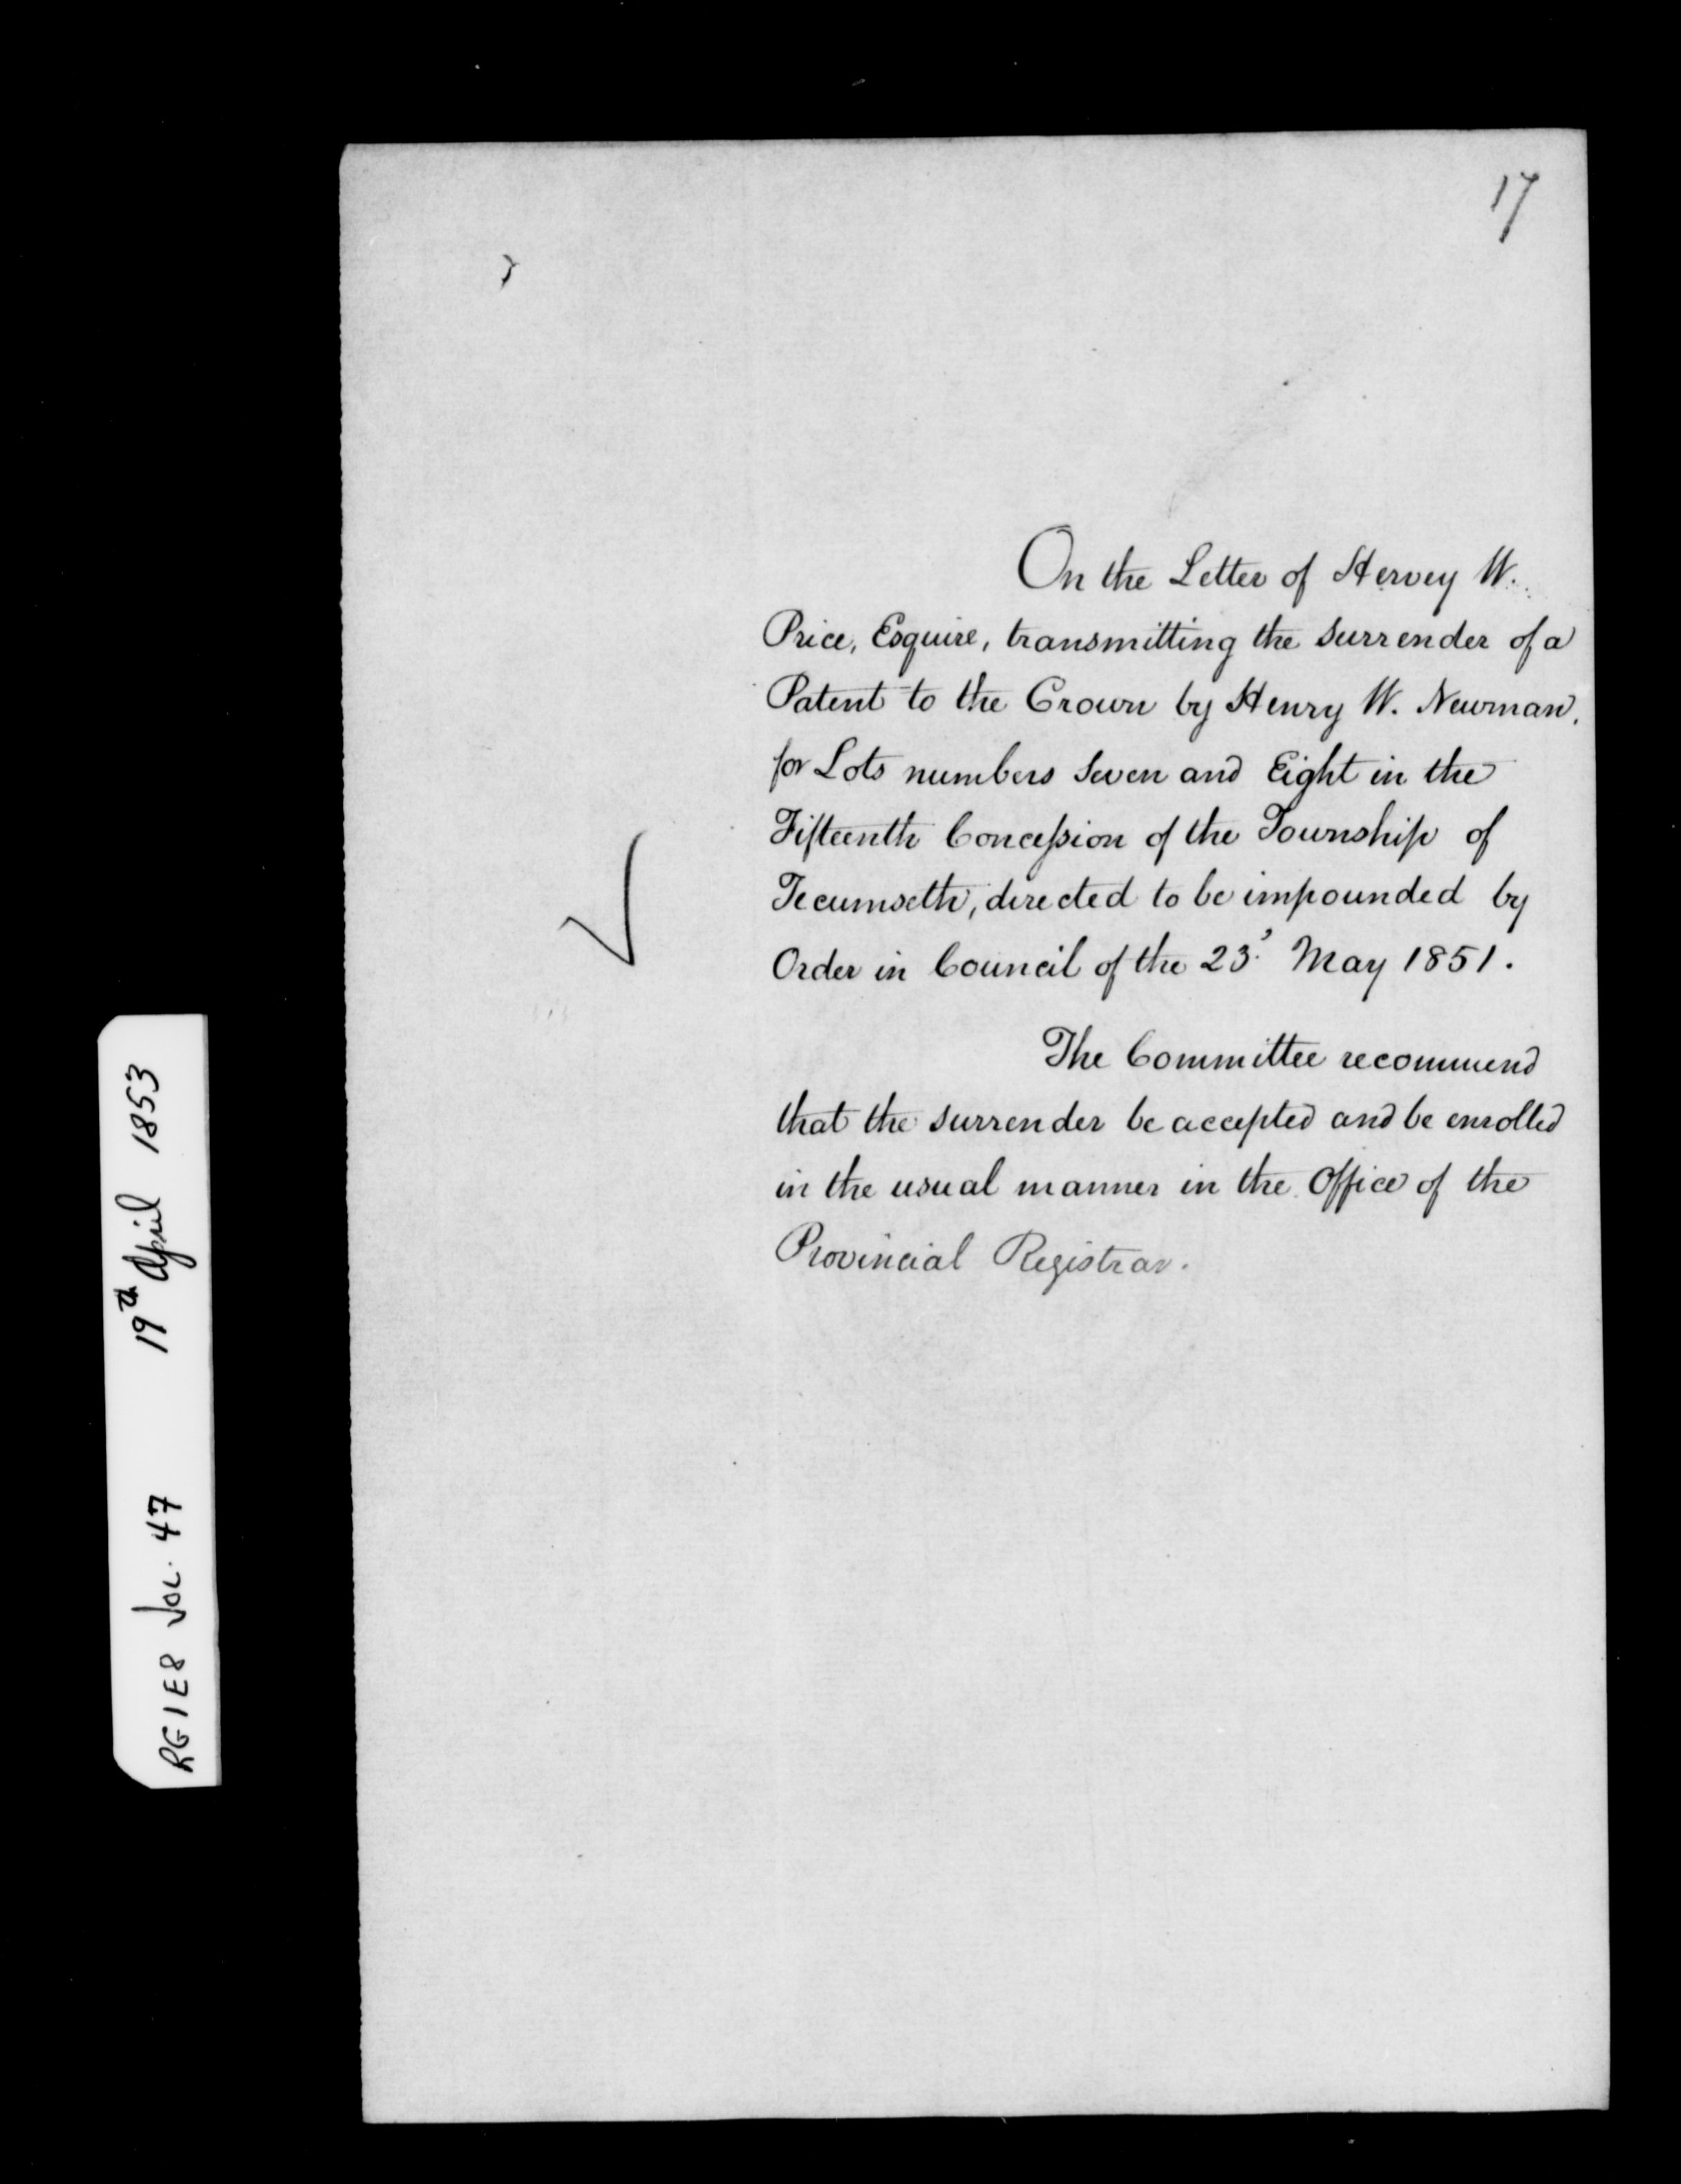 17
On the Letter of Hervey W.
Price, Esquire, transmitting the surrender of a
Patent to the Crown by Henry W. Newman,
for Lots numbers Seven and Eight in the
Fifteenth Concession of the Township of
Tecumseth, directed to be impounded by
Order in Council of the 23ᵈ May 1851.
The Committee recommend
that the surrender be accepted and be enrolled
in the usual manner in the Office of the
Provincial Registrar.
RG1E8 VOL. 47 19th April 1853